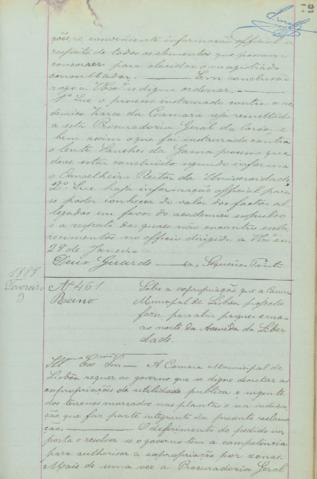 ções, e conveniente informação official a
respeito de todos os elementos que possam
concorrer para elucidar o magistrado
consultador. Em conclusão
rogo a VExa se digne ordenar
1º Que o processo instaurado contra o aca
demico Vieira da Camara seja remettido
a esta Procuradoria Geral da Coroa, e
bem assim o que foi instaurado contra
o lente Sanches da Gama, processo que
deve estar concluido segundo informa
o Conselheiro Reitor da Universidade
2º Que haja informação official para
se poder conhecer do valor dos factos al
legados em favor do academico
e a respeito das quaes não encontro escla
recimentos no officio dirigido a VExa em
28 de Janeiro
Deus Guarde Sequeira Pinto
1888
Fevereiro
9
Nº 461
Reino
Sobre a expropriação que a Camara
Municipal de Lisboa projecta
fazer para um parque e ruas
ao norte da Avenida da Liber
dade.
Illmo Exmo Snr A Camara Municipal de
Lisboa requer ao governo que se digne decretar a
expropriação de utilidade publica e urgente
dos terrenos marcados nas plantas e na relação
que faz parte integrante da presente reclama
ção. O deferimento do pedido im
porta o resolver se o governo tem a competencia
para authorisar a expropriação por zonas.
Mais de uma vez a Procuradoria Geral